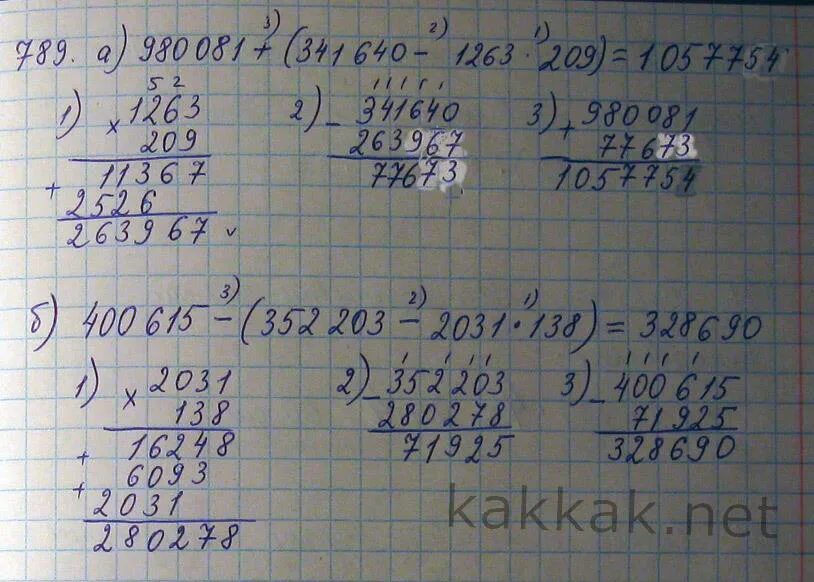 789. а) 980 081 + (341 640 − 1263 · 209) = 1 057 754
3) 2) 1)
5 2
1) × 1263
209
11367
+ 2526
263967
2) − 341640
263967
77673
3) + 980081
77673
1057754
б) 400 615 − (352 203 − 2031 · 138) = 328690
3) 2) 1)
1) × 2031
138
+ 16248
+ 6093
2031
280278
2) − 352203
280278
71925
3) − 400615
71925
328690
kakkak.net